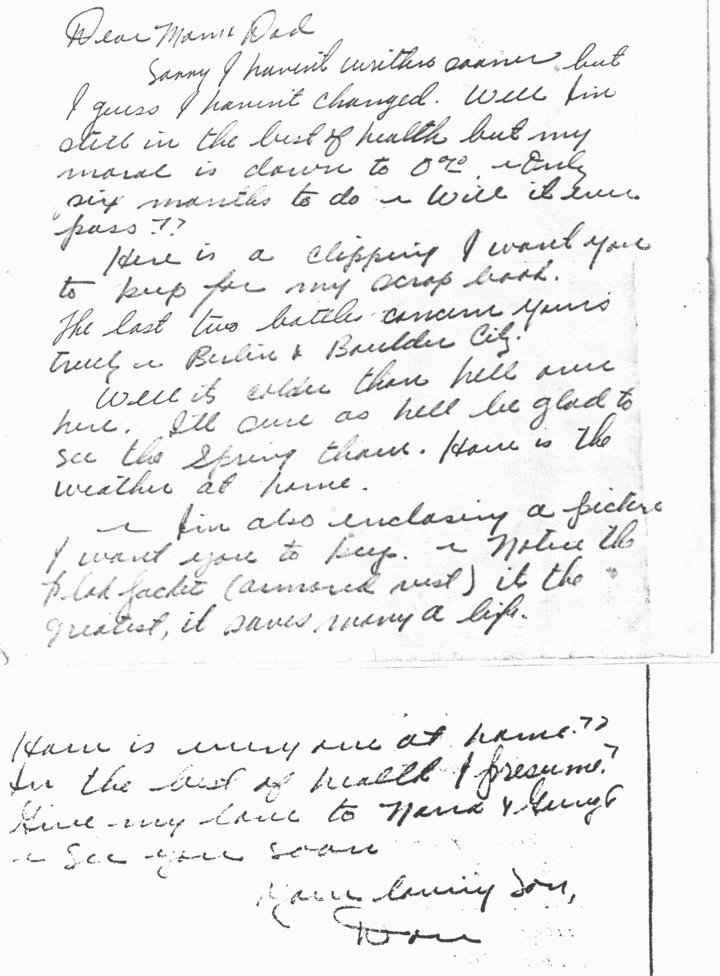 Dear Mom & Dad
Sorry I haven't written sooner but
I guess I haven't changed. Well I'm
still in the best of health but my
moral is down to 0%. ~ Only
six months to do ~ Will it ever
pass??
Here is a clipping I want you
to keep for my scrap book.
The last two battles concern yours
truly ~ Berlin & Boulder City.
Well it's colder than hell over
here. I'll sure as hell be glad to
see the Spring thaw. How is the
weather at home.
~ I'm also enclosing a picture
I want you to keep. ~ Notice the
flak jacket (armored vest) it's the
greatest, it saves many a life.
How is everyone at home??
In the best of health I presume?
Give my love to Nana &
~ See you soon
Your loving Son,
Don